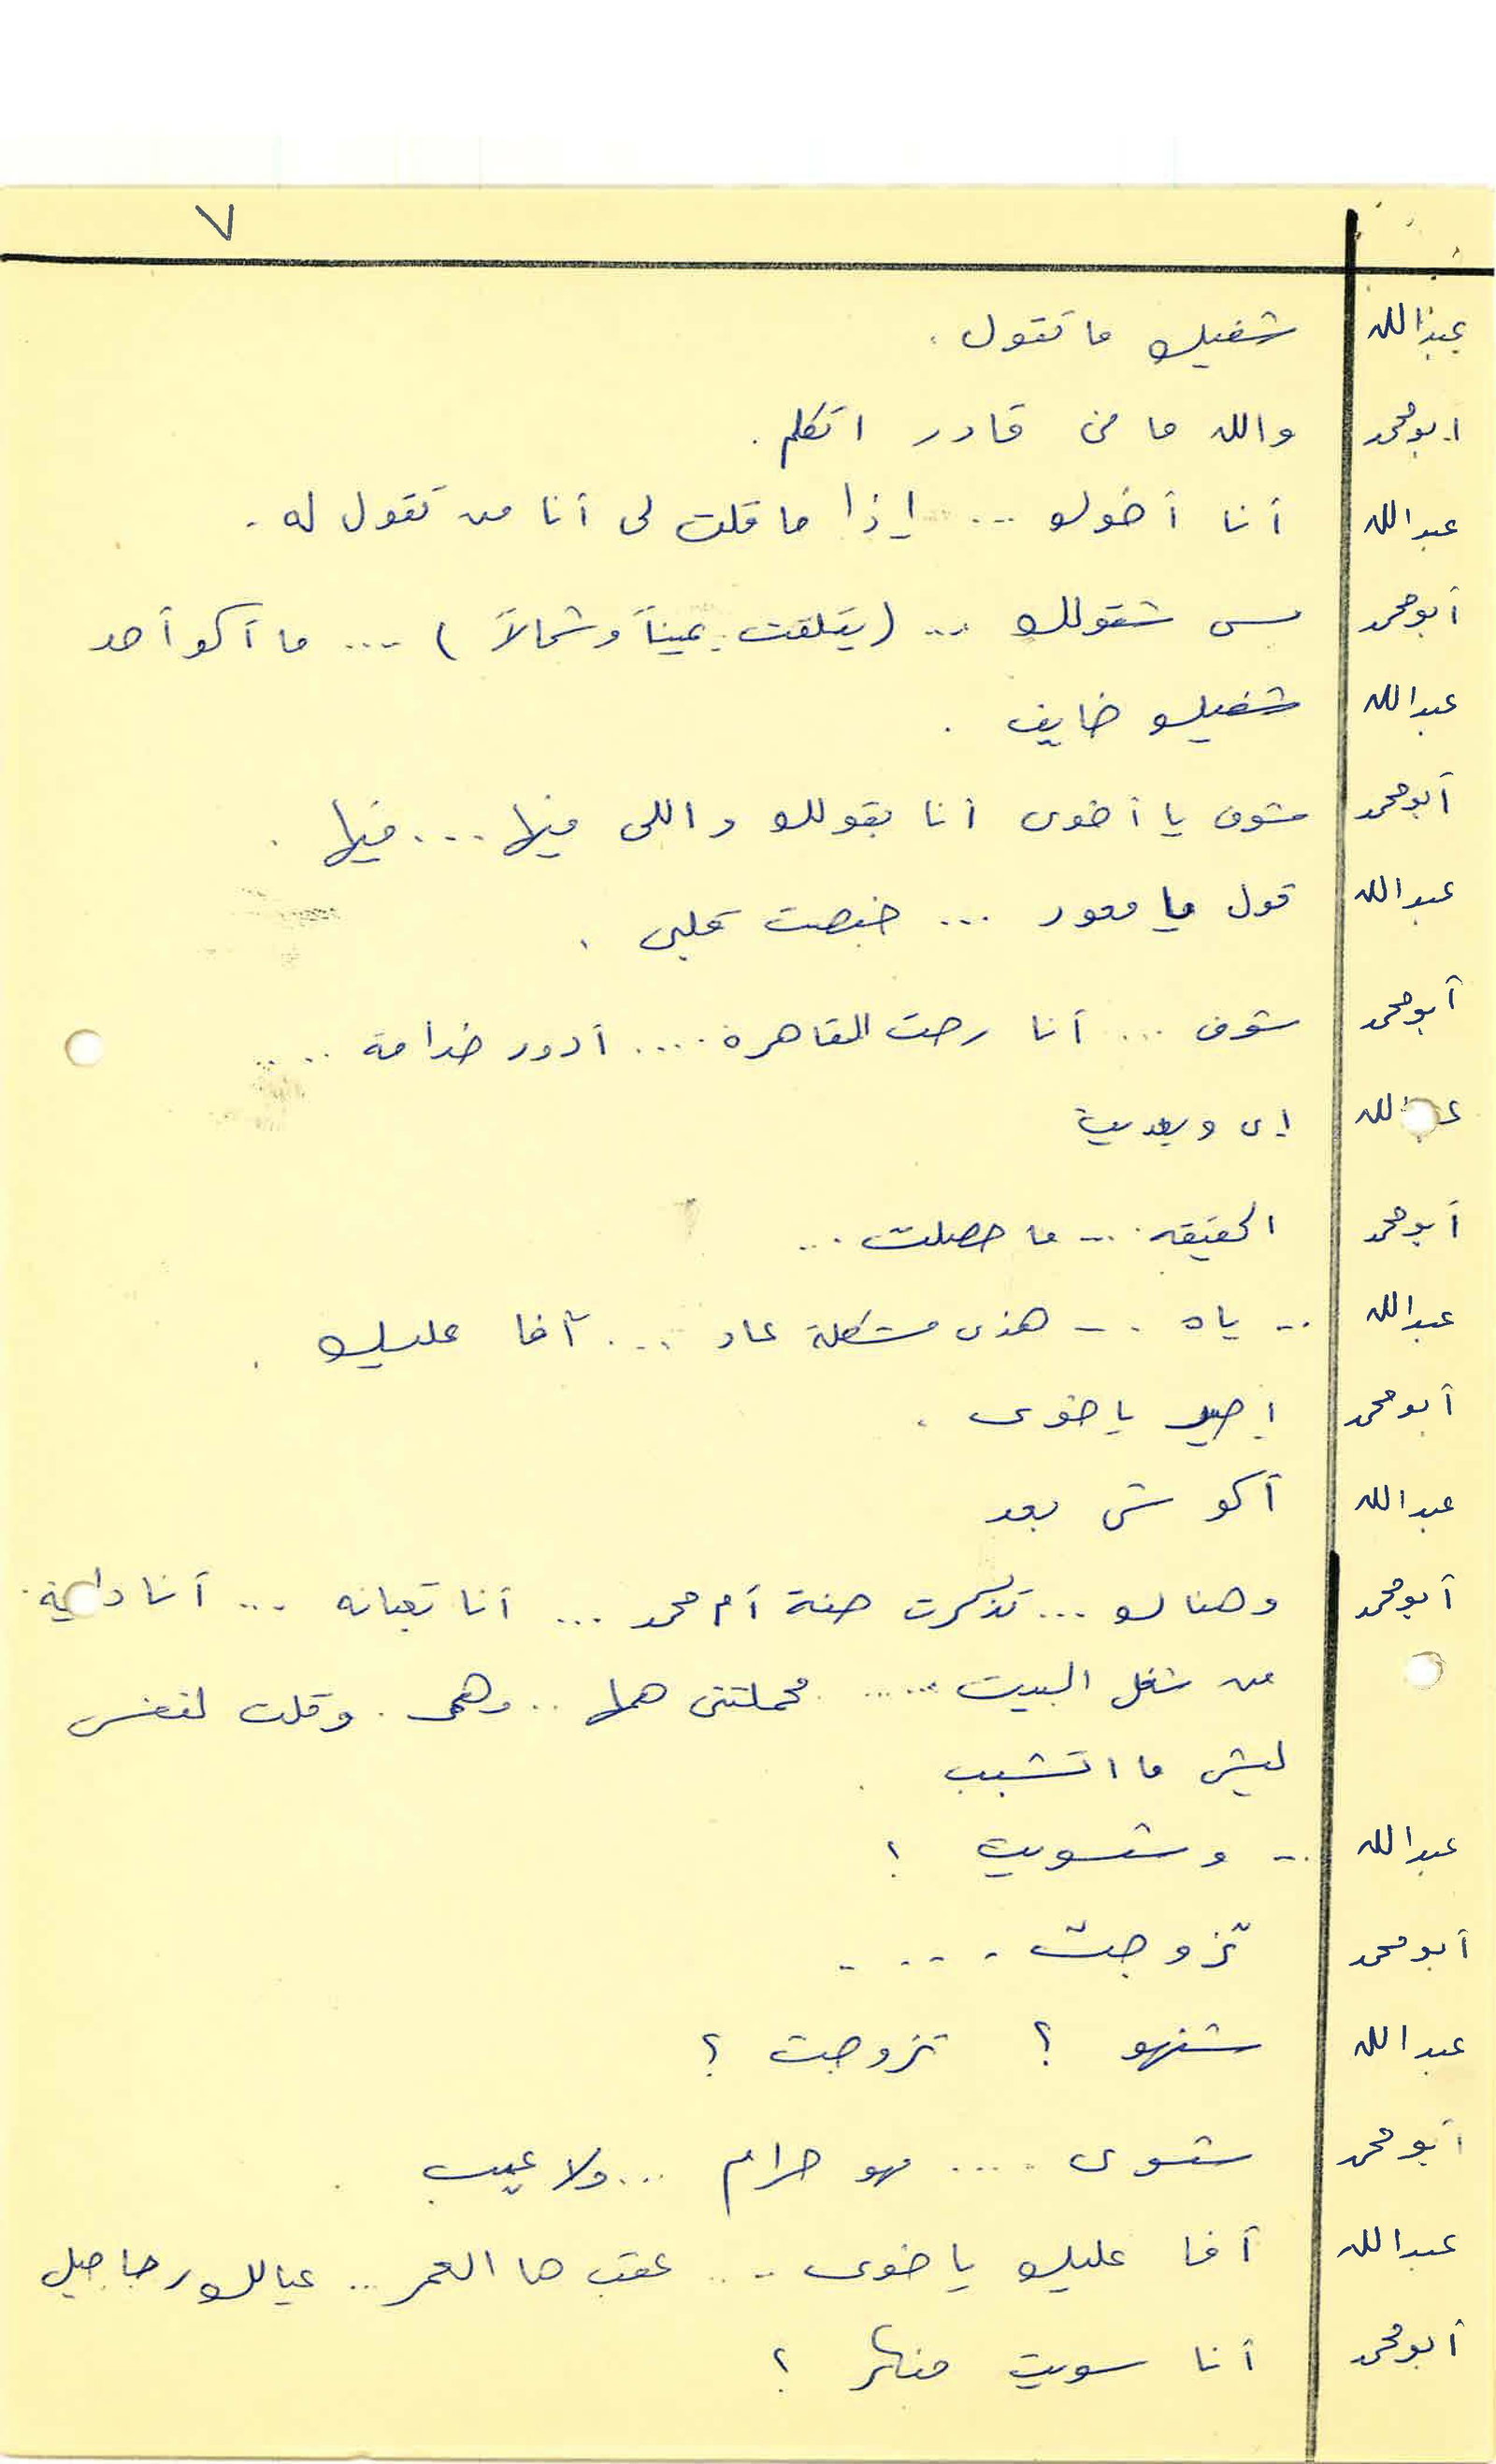 ٧
عبدالله شفيك ما تقول .
ابو محمد والله ما نى قادر اتكلم .
عبدالله أنا أخوك ... إذا ما قلت لى أنا من تقول له .
أبو محمد بس شقولك ... (يتلفت يميناً وشمالاً) .... ما أكو أحد
عبدالله شفيك خايف .
أبو محمد شوف يا أخوى أنا بقولك واللى فيها ... فيها .
عبدالله قول يا معود ... خبصت قلبى .
أبو محمد شوف ... أنا رحت القاهرة .... أدور خدامة .....
عبدالله اى وبعدين
أبو محمد الحقيقه ... ما حصلت ...
عبدالله .. ياه ... هذى مشكلة عاد .... أفا عليك .
أبو محمد إصبر ياخوى .
عبدالله أكو شى بعد
أبو محمد وهناك ... تذكرت حنة أم محمد ... أنا تعبانه ... أنا دايخة
من شغل البيت ..... محملتنى همها .. وهمى . وقلت لنفسى
ليش ما اتشبب .
عبدالله .. وشسويت ؟
أبو محمد تزوجت ....
عبدالله شنهو ؟ تزوجت ؟
أبو محمد شسوى .... مهو حرام ... ولا عيب .
عبدالله أفا عليك ياخوى ... عقب ها العمر ... عيالك رجاجيل
أبو محمد أنا سويت منكر ؟